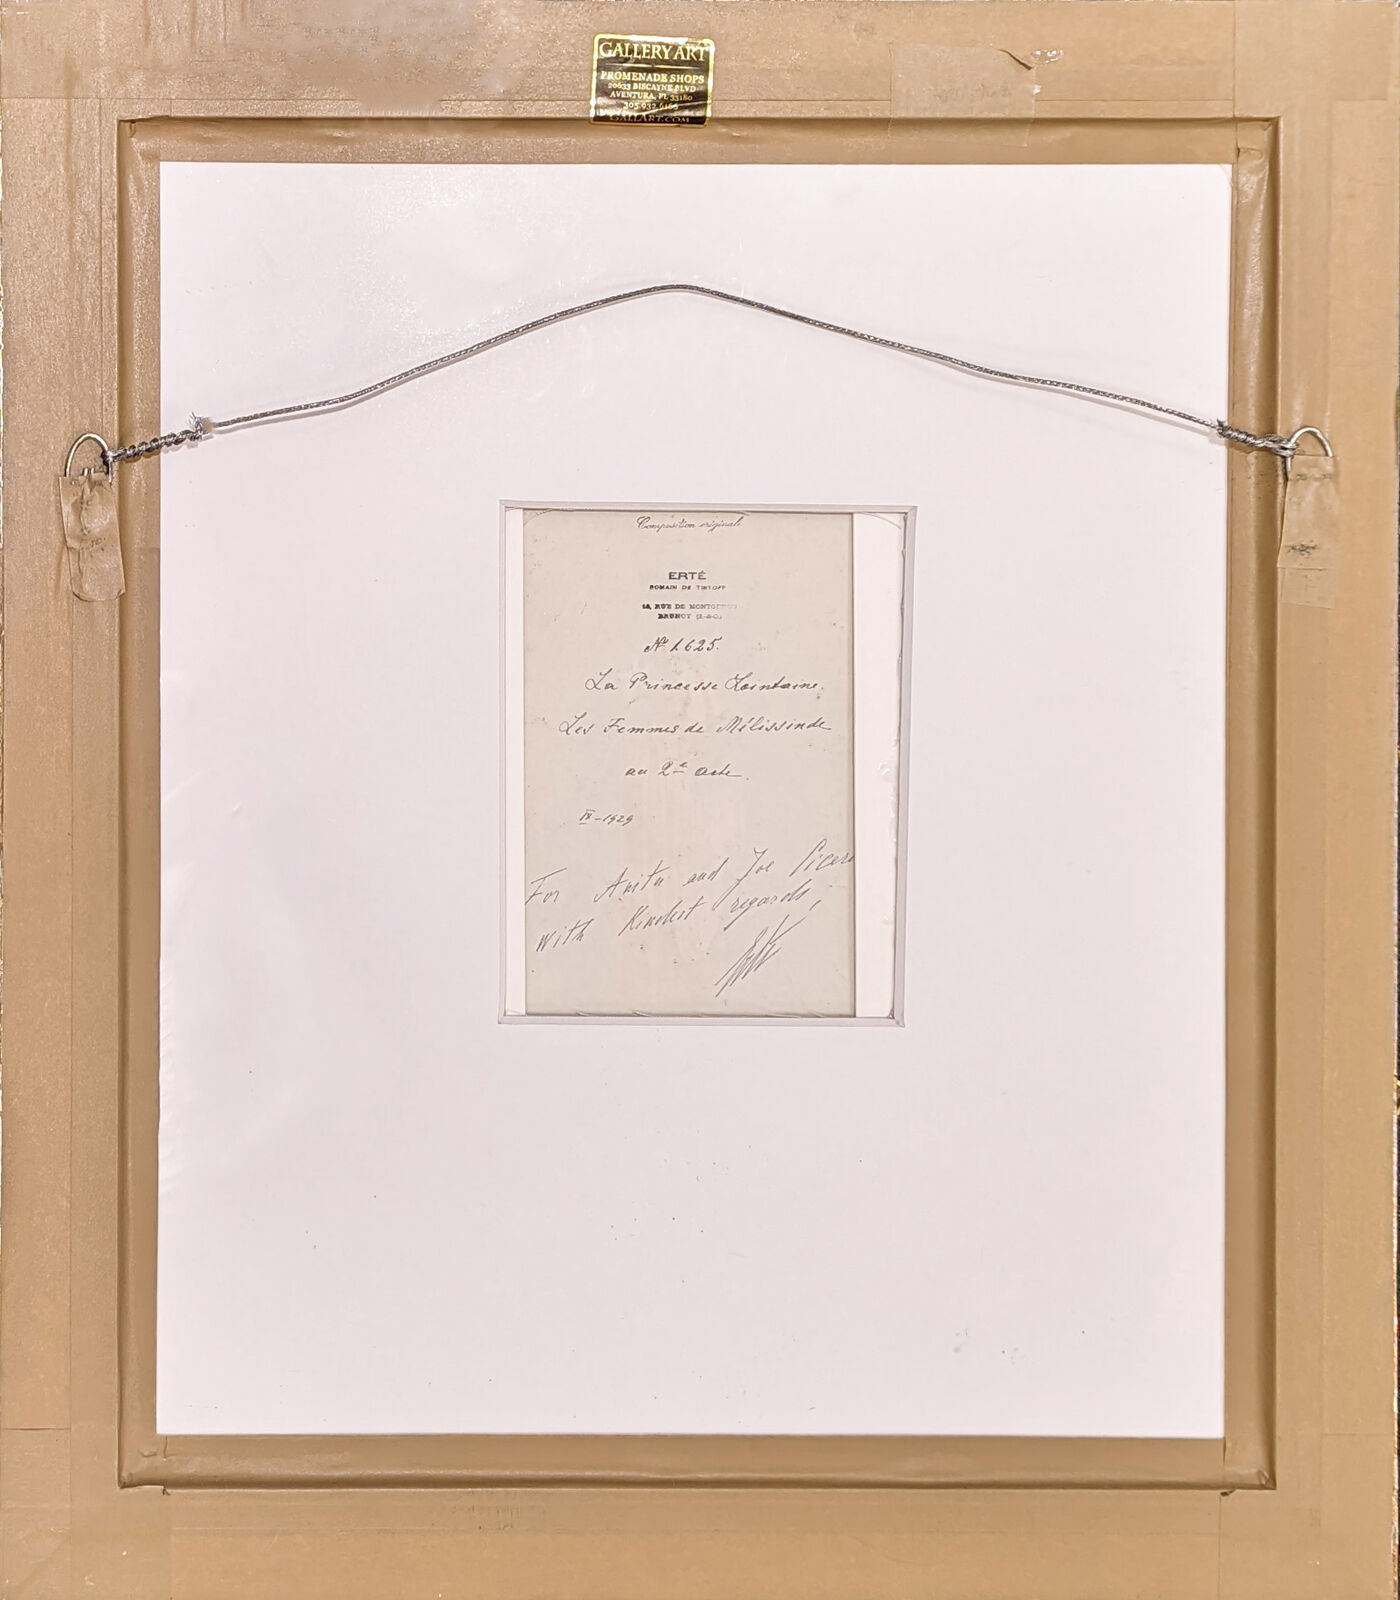 GALLERY ART
PROMENADE SHOPS
20633 BISCAYNE BLVD
AVENTURA, FL 33180
305.932.6166
GALLART.COM
Composition originale
ERTÉ
ROMAIN DE TIRTOFF
RUE DE
BRUNOY (S.-&-O.)
No 1.625.
La Princesse Lointaine.
Les Femmes de Mélissinde
au 2e acte.
IX-1929
For Anita and Joe
with Kindest regards,
Erté